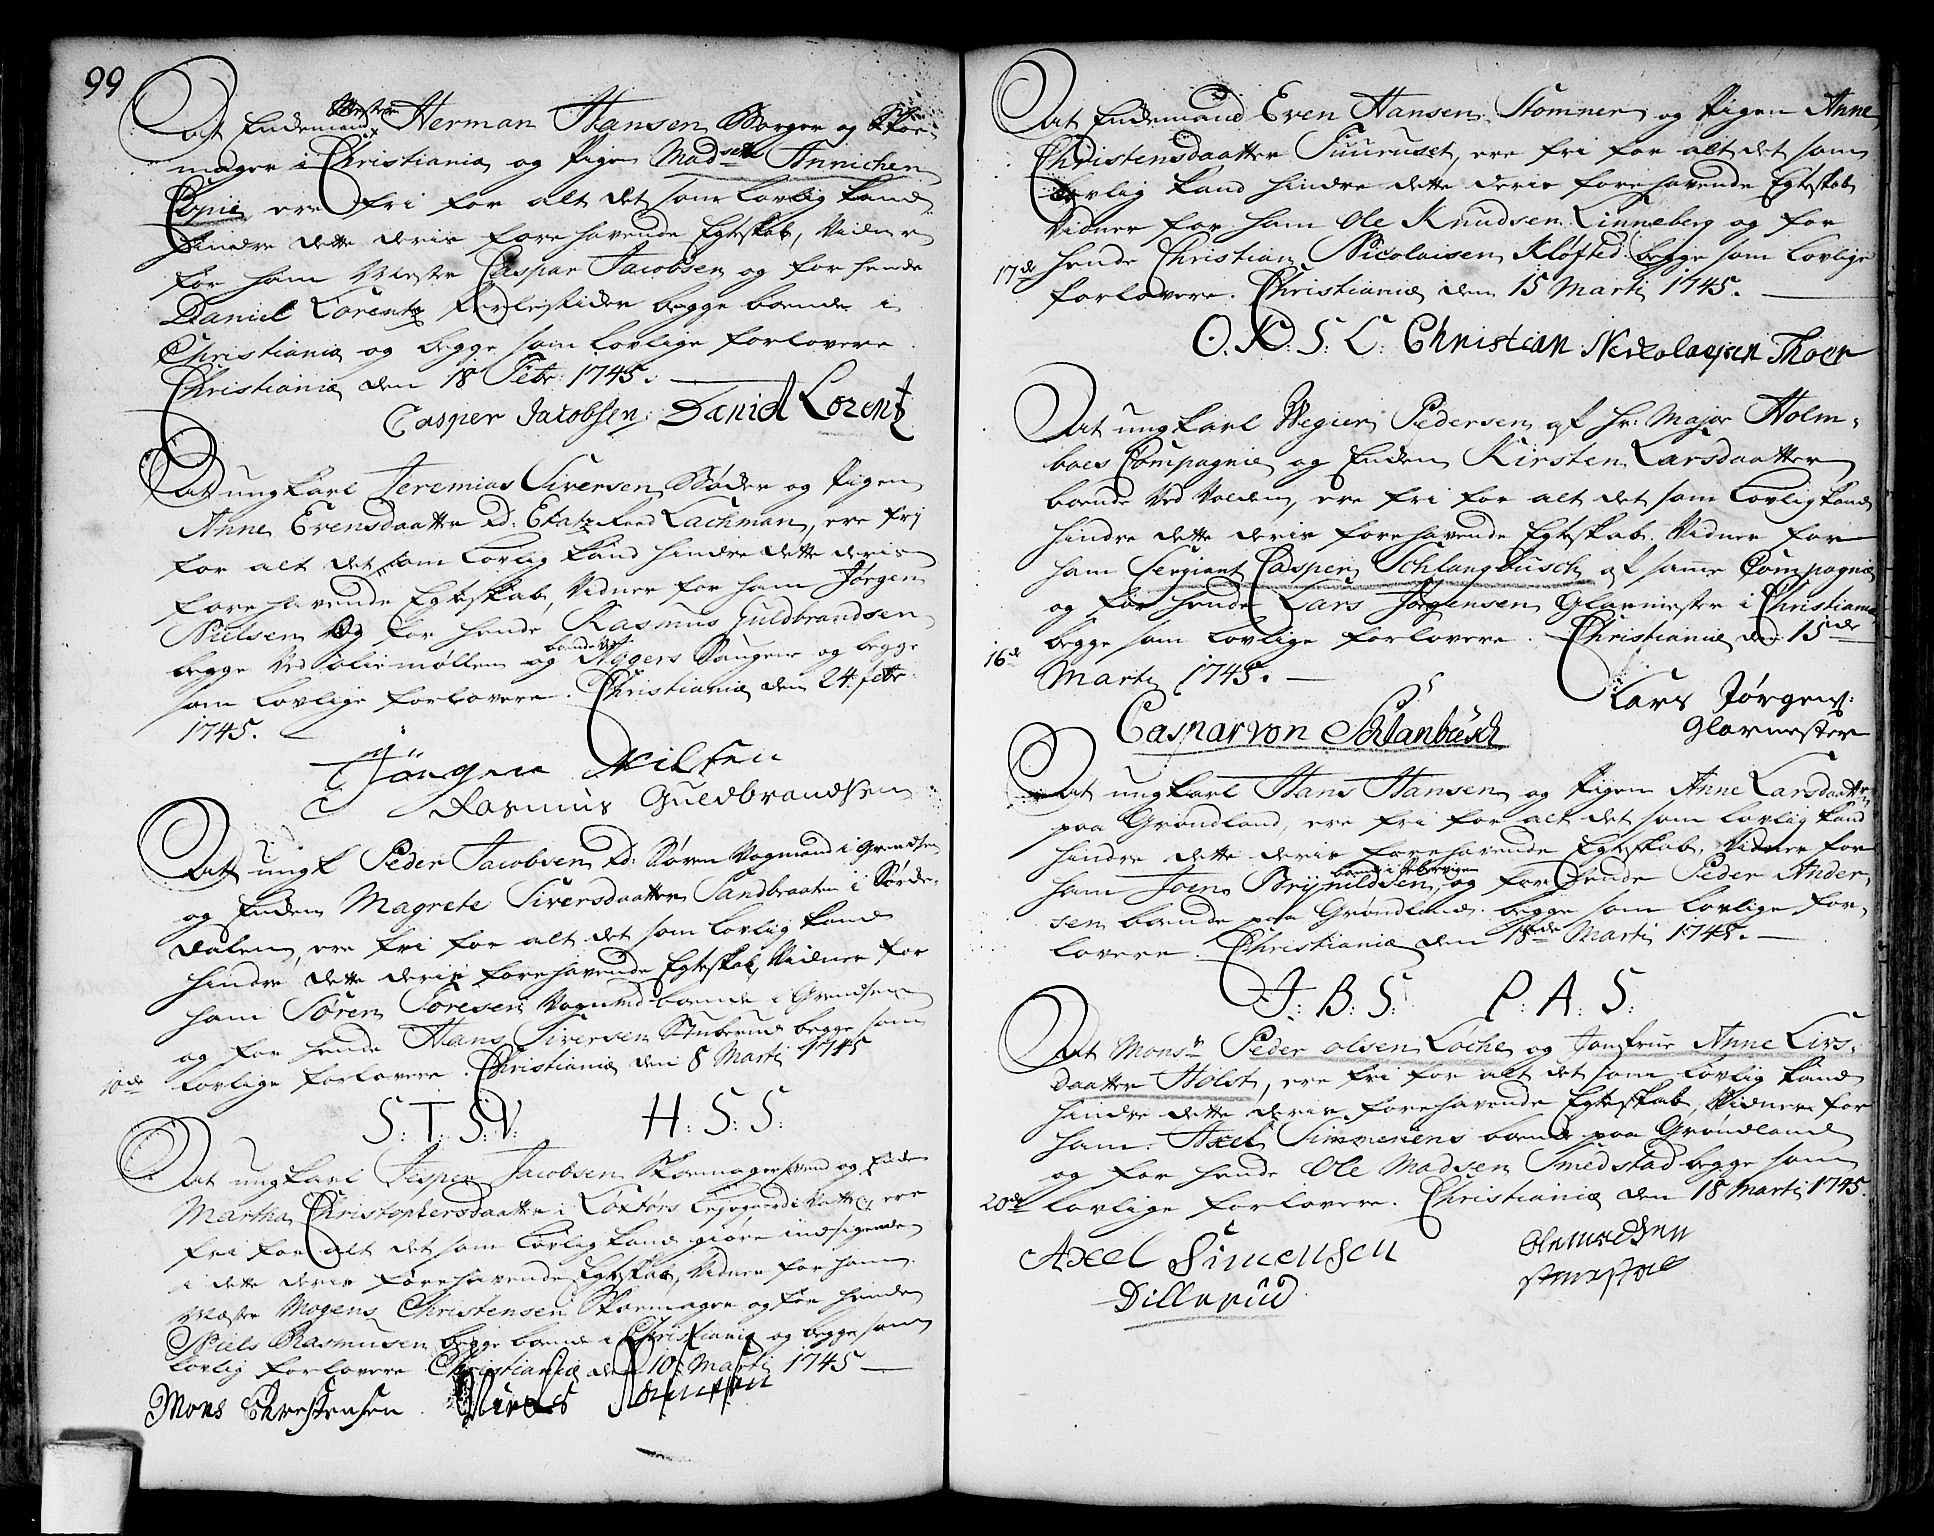 99
At Enckemand Mester Herman Hansen Borger og Skoe-
mager i Christiania og Pigen Madselle Annichen
Copie, ere fri for alt det som lovlig kand
hindre dette deris forehavende Egteskab, Vidner
for ham Mester Caspar Jacobsen og for hende
Daniel Lorentz begge boende i
Christiania og begge som lovlige forlovere
Christiania den 18 Febr: 1745.
Casper Jacobsen. Daniel Lorentz
At ungkarl Jeremias Siversen Bøder og Pigen
Anne Evensdaatter Lachman, ere frj
for alt det som lovlig kand hindre dette deris
forehavende Egteskab, Vidner for ham Jørgen
Nielsen og for hende Rasmus Guldbrandsen
begge ved oliemøllen og boende ved Aggers Saugene og begge
som lovlige forlovere. Christiania den 24. febr:
1745.
Jörgen Nilsen
Rasmus Guldbrandsen
At ungk Peder Jacobsen Sören Vogmand i Grendsen
og Enken Magrete Siversdaatter Sandbraaten i Sørke-
dalen, ere fri for alt det som lovlig kand
hindre dette deris forehavende Egteskab, Vidner for
ham Søren Toresen Vogmd boende i Grendsen
og for hende Hans Siversen Stuberud begge som
10de lovlige forlovere. Christiania den 8 Marti 1745
S: T: S: V: H: S: S:
At ungkarl Jesper Jacobsen Skomagersvend og Enken
Martha Christophersdaatter i ere
fri for alt det som lovlig kand giøre indsigende
i dette deris forehavende Egteskab, Vidner for ham
Mester Mogens Christensen Skoemager og for hende
Niels Rasmusen begge boende i Christiania og begge som
lovlig forlovere Christiania den 10 Marti 1745
Mons Chrestensen. Niels
At Enckemand Even Hansen Stomner og Pigen Anne
Christensdaatter Fuuruset, ere fri for alt det som
lovlig kand hindre dette deris forehavende Egteskab
Vidner for ham Ole Knudsen Linneberg og for
17de hende Christian Nicolaisen Kløfted begge som lovlige
forlovere. Christiania den 15 Marti 1745.
O. K. S: L: Christian Nickolaysen Thoer
At ungkarl Wegier Pedersen af Hr: Major Holm-
boes Compagnie og Enken Kirsten Larsdaatter
boende ved Volden, ere fri for alt det som lovlig kand
hindre dette deris forehavende Egteskab. Vidner for
ham Sergiant Casper Schlangbusch af samme Compagnie
og for hende Lars Jørgensen Glarmester i Christiania
begge som lovlige forlovere. Christiania den 15de
16de Marti 1745.
Lars Jørgens:
Glarmester
Caspar von Schlanbusch
At ungkarl Hans Hansen og Pigen Anne Larsdaatter
paa Grønland, ere fri for alt det som lovlig kand
hindre dette deris forehavende Egteskab, Vidner for
ham Joen Brÿnildsen, boende i og for hende Peder Ander-
sen boende paa Grønland begge som lovlige for-
lovere. Christiania den 18de Marti 1745.
J: B: S: P: A: S:
At Monsr Peder Olsen Loche og Jomfrue Anne Lars-
daatter Holst, ere fri for alt det som lovlig kand
hindre dette deris forehavende Egteskab, Vidner for
ham: Axel Simmenens boende paa Grønland
og for hende Ole Madsen Smedstad begge som
20de lovlige forlovere. Christiania den 18 Marti 1745.
Axel Simensen
Dillerud
Ole Madsen